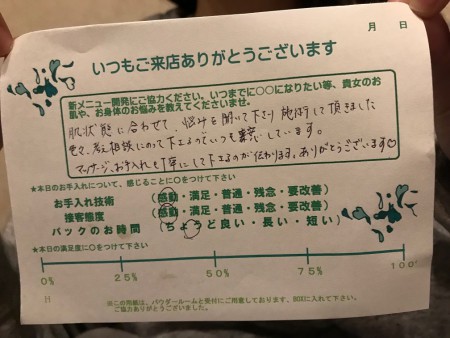 月　日
いつもご来店ありがとうございます
新メニュー開発にご協力ください。いつまでに○○になりたい等、貴女のお
肌や、お身体のお悩みを教えてくださいませ。
肌状態に合わせて、悩みを聞いて下さり施術して頂きました
色々、考え相談にのって下さるのでいつも感謝しています。
マッサージ、お手入れも丁寧にして下さるのが伝わります。ありがとうございます♡
★本日のお手入れについて、感じることに○をつけて下さい
お手入れ技術　（感動・満足・普通・残念・要改善）
接客態度　（感動・満足・普通・残念・要改善）
パックのお時間　（ちょうど良い・長い・短い）
★本日の満足度に○をつけて下さい
0%　25%　50%　75%　100%
※この用紙は、パウダールームと受付にご用意しております、BOXに入れて下さい。
ご協力ありがとうございました。